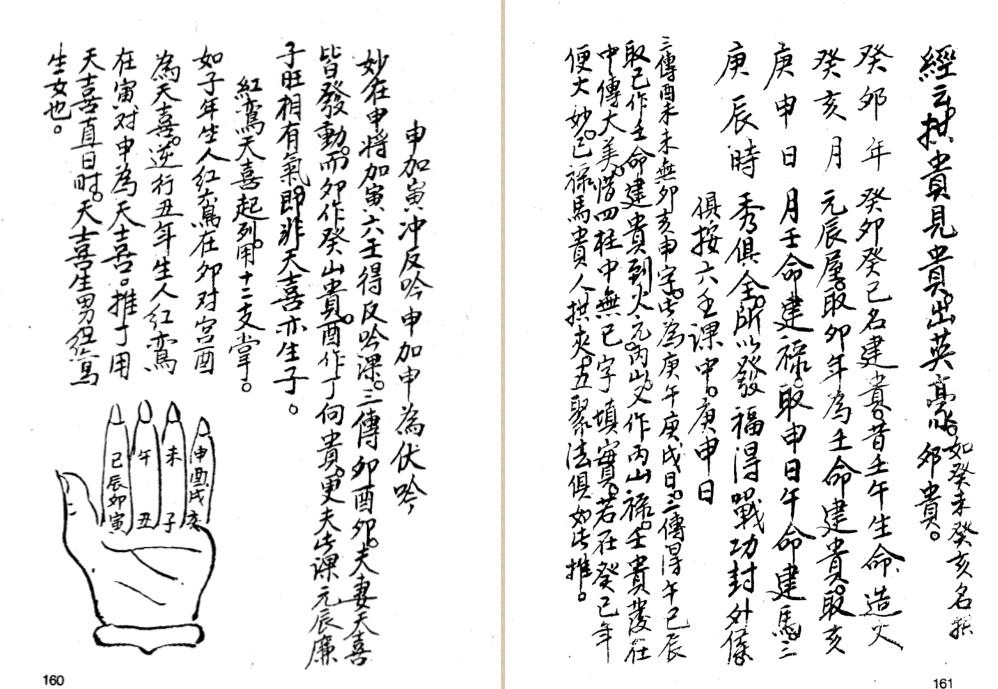 申加寅冲反吟申加申為伏吟
妙在申将加寅六壬得反吟課。三傳卯酉卯。夫妻天喜
皆發動。而卯作癸山貴。酉作丁向貴。更夫此課元辰廉
子旺相有氣。即非天喜亦生子。
紅鸞天喜起列。用十二支掌。
如子年生人紅鸞在卯对宮酉
為天喜。逆行丑年生人紅鸞
在寅对申為天喜。推丁用
天喜直日时。天喜生男紅鸞
生女也。
申酉戌亥
未子
午丑
巳辰卯寅
160
經云拱貴見貴。出英豪。如癸未癸亥名拱卯貴。
癸卯年 癸卯癸巳名建貴。昔壬午生命造火
癸亥月 元辰屋。取卯年為壬命建貴。取亥
庚申日 月壬命建祿。取申日午命建馬。三
庚辰時 秀俱全。所以發福得戰功封外僚。
俱按六壬課中。庚申日
三傳酉未未無卯亥申字。此為庚午庚戌日。三傳得午巳辰
取巳作壬命建貴到火元。丙山又作丙山祿。壬貴發在
中傳大美。惜四柱中無巳字填實。若在癸巳年
便大妙。巳祿馬貴人拱夾。五聚法俱如此推。
161